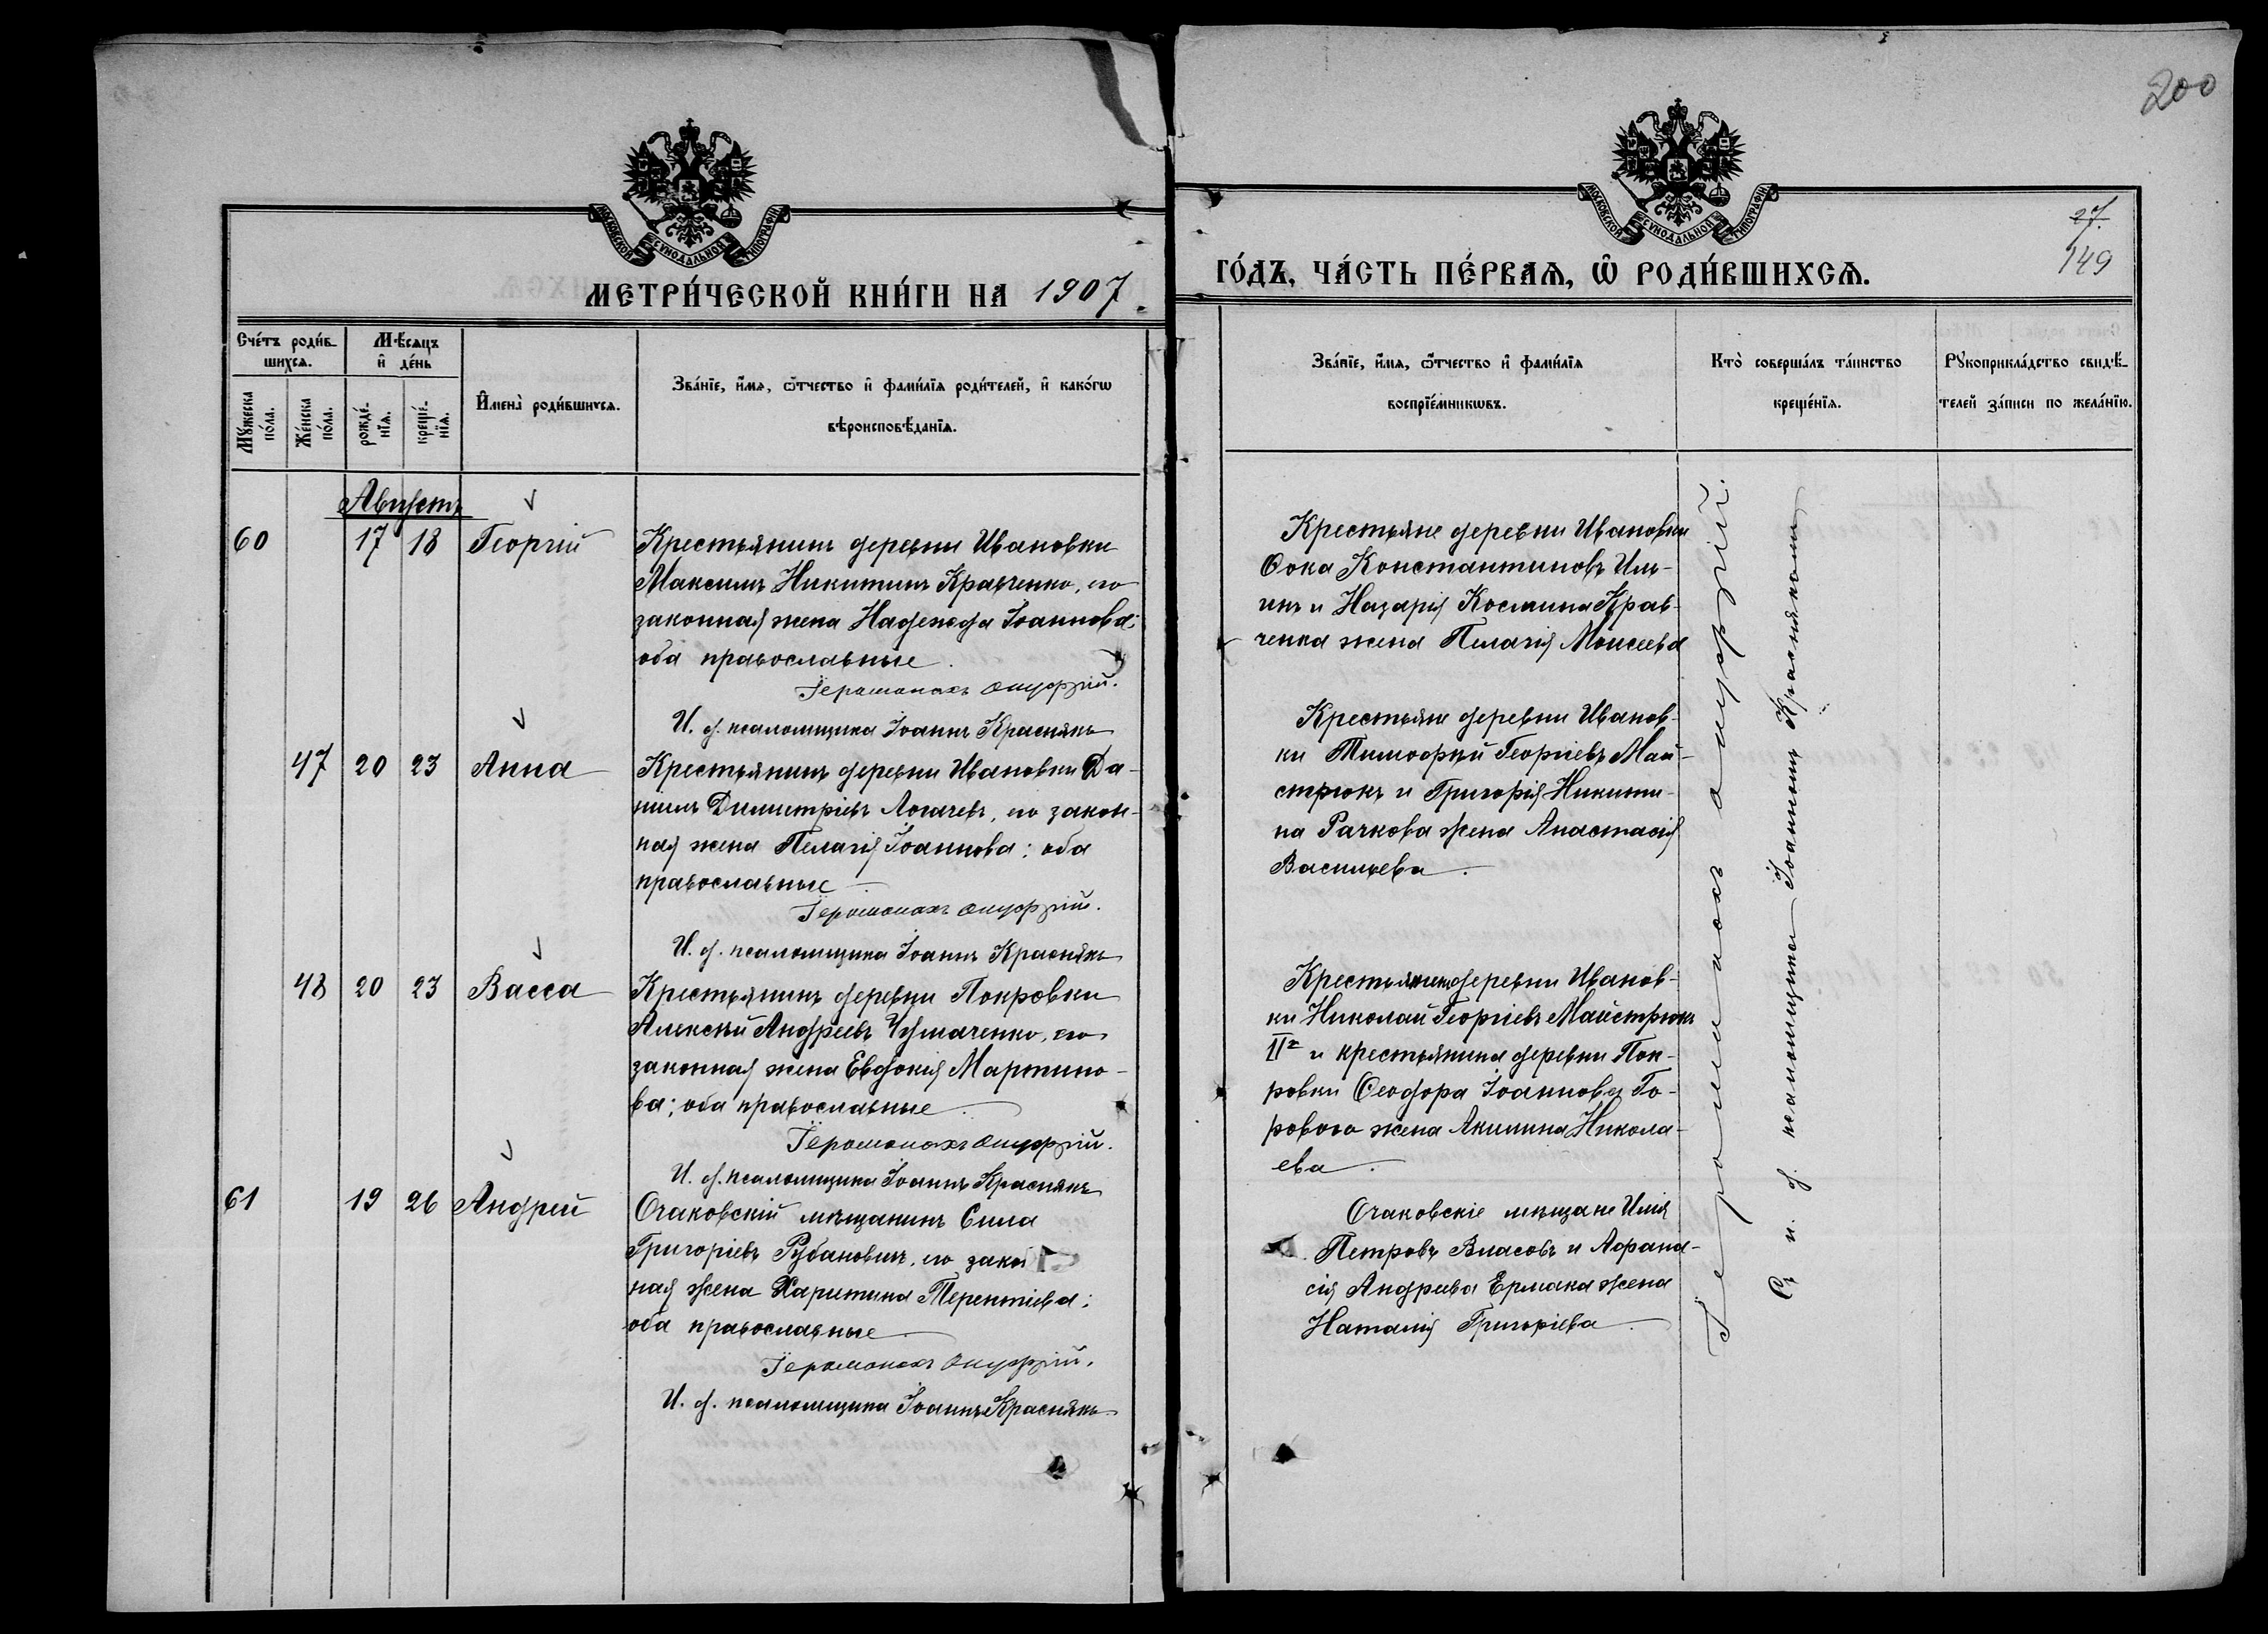 200
МОСКОВСКОЙ СѴНОДАЛЬНОЙ ТИПОГРАФІИ
МОСКОВСКОЙ СѴНОДАЛЬНОЙ ТИПОГРАФІИ
27.
149
МЕТРИ́ЧЕСКОЙ КНИ́ГИ НА 1907
ГО́ДЪ, ЧА́СТЬ ПЕ́РВАѦ, Ѡ҆ РОДИ́ВШИХСѦ.
Сче́тъ роди́в-
шихсѧ.
Мѣ́сяцъ
и҆ де́нь
Мꙋ́жеска
по́ла.
Же́нска
по́ла.
рожде́-
нїѧ.
креще́-
нїѧ.
И҆мена̀ роди́вшихсѧ.
Зва́нїе, и҆́мѧ, ѻ҆́тчество и҆ фами́лїѧ роди́телей, и҆ како́гѡ
вѣроисповѣ́данїѧ.
Зва́нїе, и҆́мѧ, ѻ҆́тчество и҆ фами́лїѧ
воспрїе́мникѡвъ.
Кто̀ соверша́лъ та́инство
креще́нїѧ.
Рꙋкоприкла́дство свидѣ́-
телей за́писи по жела́нїю.
Августъ
60 17 18 Георгій
Крестьянинъ деревни Ивановки
Максимъ Никитинъ Кравченко, его
законная жена Надежда Іоаннова;
оба православные.
Іеромонахъ Онуфрій.
И. д. псаломщика Іоаннъ Краснякъ
Крестьяне деревни Ивановки
Ѳока Константиновъ Иль-
инъ и Назарія Космина Крав-
ченка жена Пелагія Моисеева
47 20 23 Анна
Крестьянинъ деревни Ивановки Да-
ніилъ Димитріевъ Логачевъ, его закон-
ная жена Пелагія Іоаннова: оба
православные
Іеромонахъ Онуфрій.
И. д. псаломщика Іоаннъ Краснякъ
Крестьяне деревни Иванов-
ки Тимофей Георгіевъ Май-
стрюкъ и Григорія Никити-
на Рачкова жена Анастасія
Васильева.
48 20 23 Васса
Крестьянинъ деревни Покровки
Алексѣй Андреевъ Чумаченко, его
законная жена Евдокія Мартино-
ва; оба православные
Іеромонахъ Онуфрій.
И. д. псаломщика Іоаннъ Краснякъ
Крестьянинъ деревни Иванов-
ки Николай Георгіевъ Майстрюкъ
IIй и крестьянина деревни Пок-
ровки Ѳеодора Іоаннова Го-
рового жена Акилина Никола-
ева.
61 19 26 Андрей
Очаковскій мѣщанинъ Сила
Григоріевъ Рубановичъ, его закон
ная жена Харитина Терентіева;
оба православные
Іеромонахъ Онуфрій.
И. д. псаломщика Іоаннъ Краснякъ
Очаковскіе мѣщане Илія
Петровъ Власовъ и Афана-
сія Андреева Ермака жена
Наталія Григоріева
Іеромонахъ Онуфрій.
Съ и. д. псаломщика Іоанномъ Краснякомъ